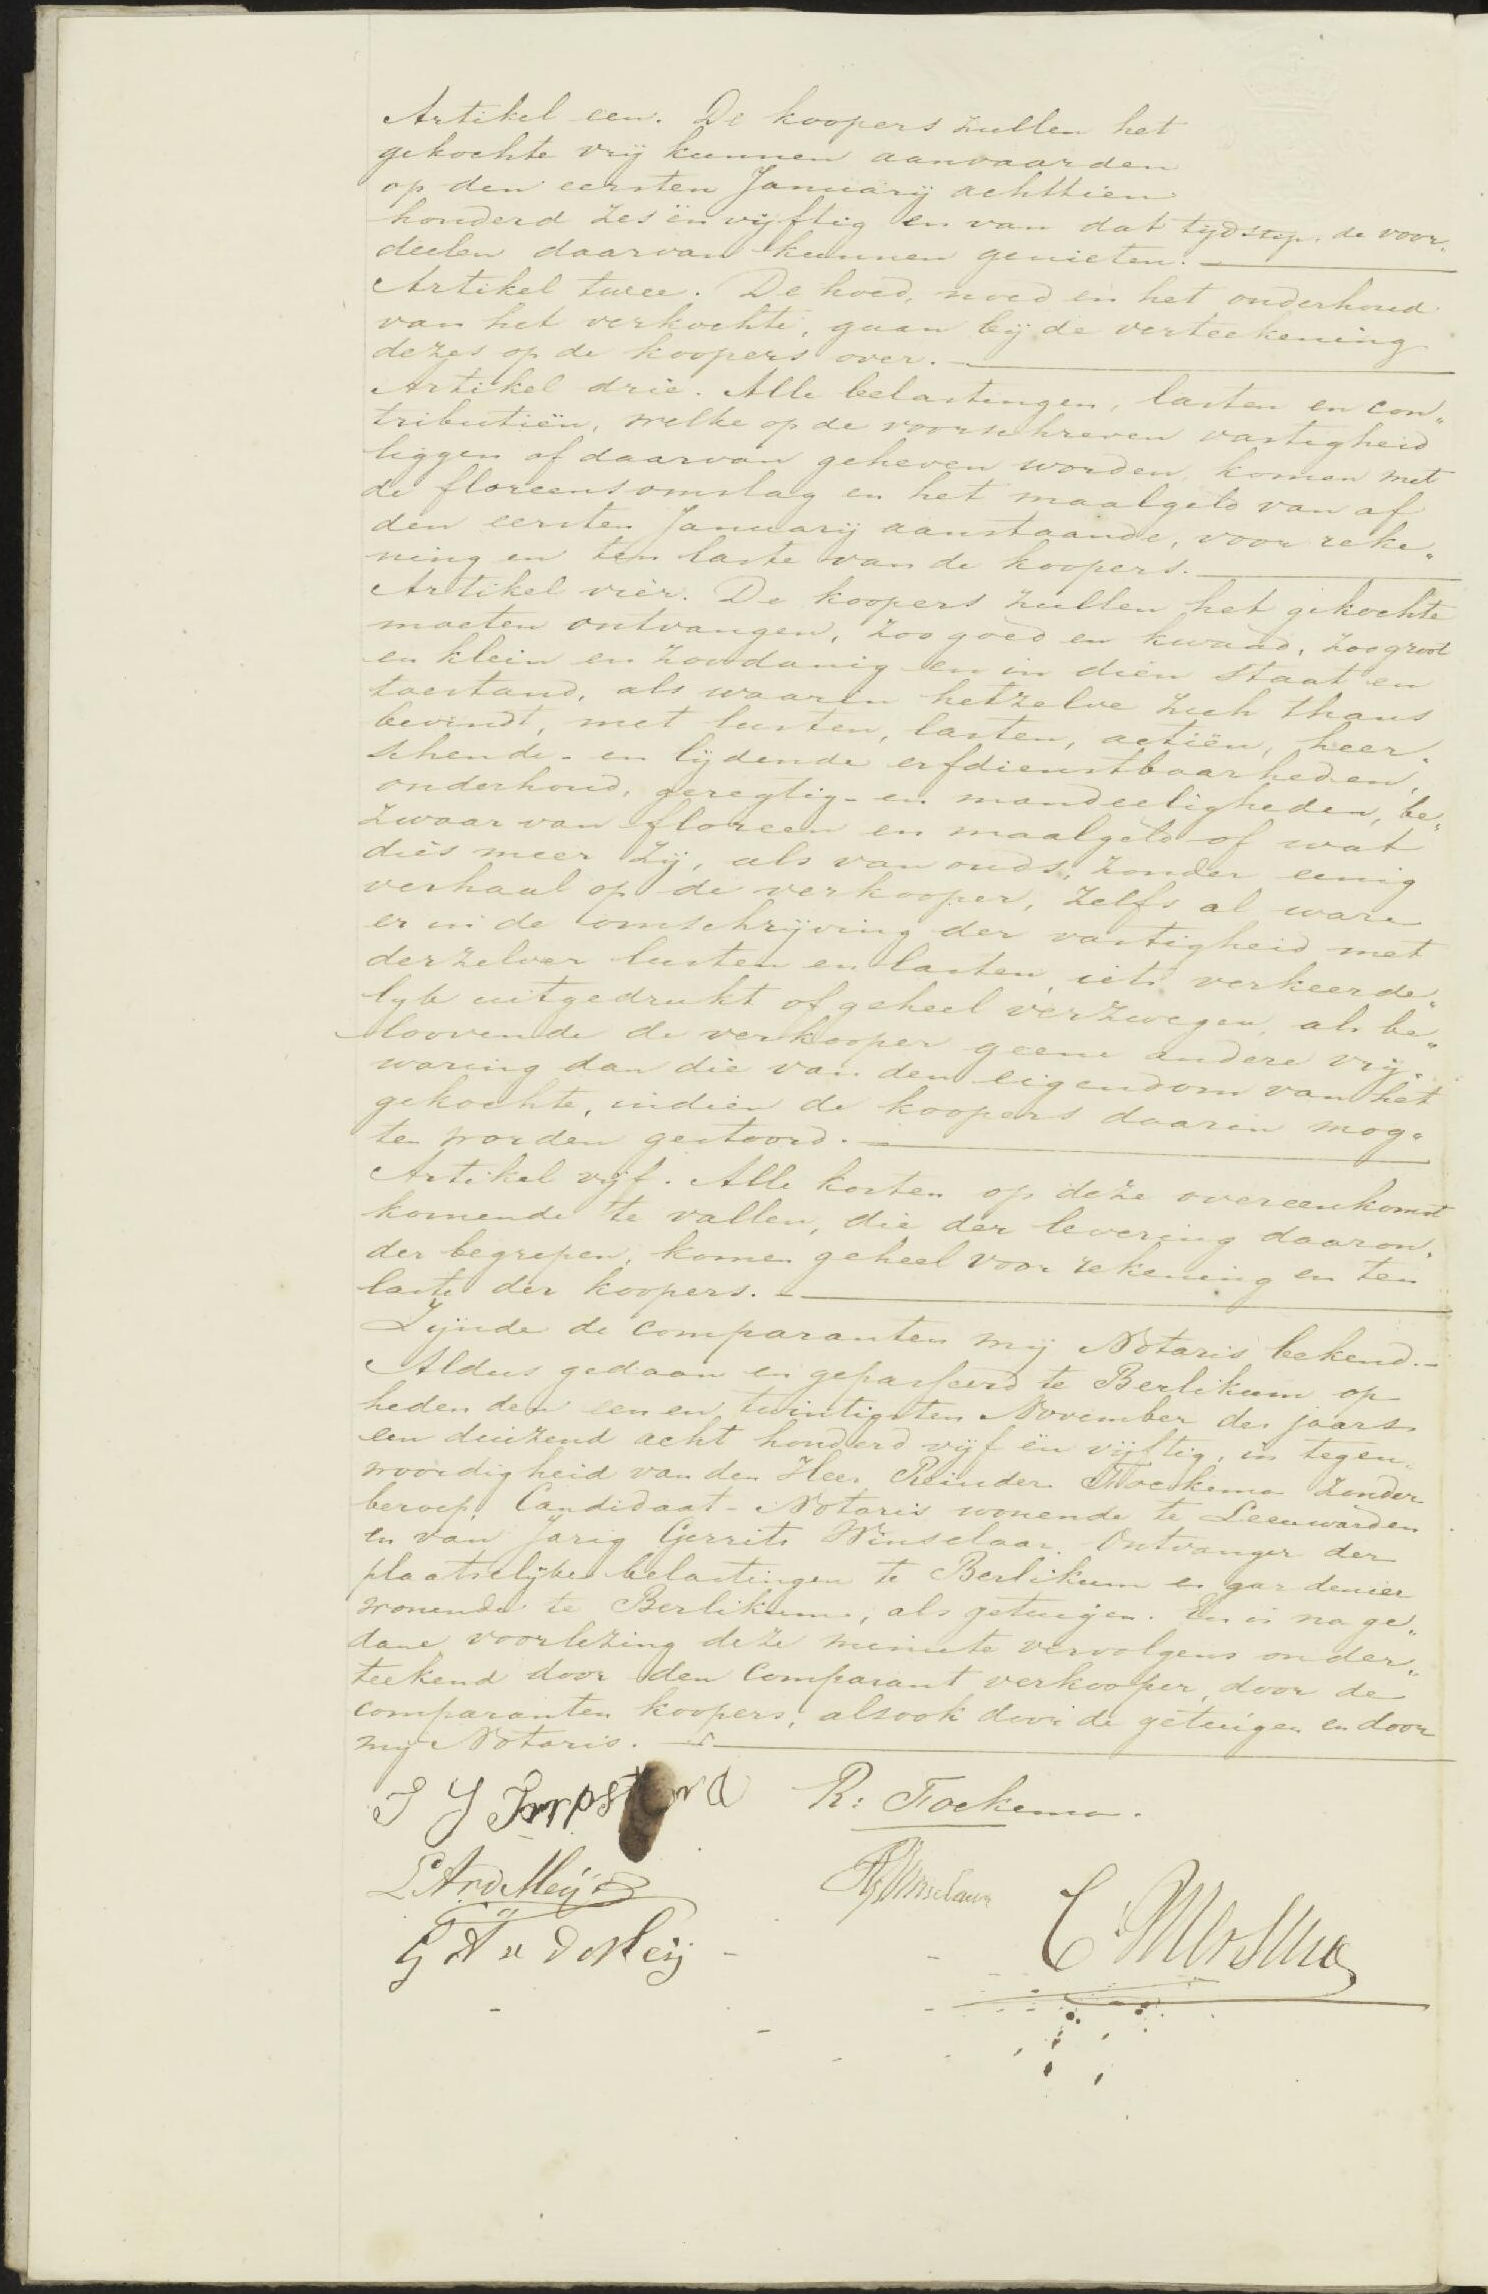 Artikel een. De koopers zullen het
gekochte vrij kunnen aanvaarden
op den eersten Januarij achttien
honderd zes en vijftig en van dat tijdstip, de voor„
deelen daarvan kunnen genieten.
Artikel twee. De hoed, noed en het onderhoud
van het verkochte, gaan bij de verteekening
dezes op de koopers over.
Artikel drie. Alle belastingen, lasten en con„
tributiën, welke op de voorschreven vastigheid
liggen of daarvan geheven worden, komen met
de floreensomslag en het maalgeld van af
den eersten Januarij aanstaande, voor reke„
ning en ten laste van de koopers.
Artikel vier. De koopers zullen het gekochte
moeten ontvangen, zoo goed en kwaad, zoo groot
en klein en zoodanig en in dien staat en
toestand, als waarin hetzelve zich thans
bevindt, met lusten, lasten, actiën, heer„
schende- en lijdende erfdienstbaarheden,
onderhoud, geregtig- en mandeeligheden, be„
zwaar van floreen en maalgeld of wat
dies meer zij, als van ouds, zonder eenig
verhaal op de verkooper, zelfs al ware
er in de omschrijving der vastigheid met
derzelver lusten en lasten, iets verkeerde„
lijk uitgedrukt of geheel verzwegen, als be„
loovende de verkooper geene andere vrij„
waring dan die van den eigendom van het
gekochte, indien de koopers daarin mog„
ten worden gestoord.
Artikel vijf. Alle kosten op deze overeenkomst
komende te vallen, die der levering daaron„
der begrepen, komen geheel voor rekening en ten
laste der koopers.
Zijnde de comparanten mij Notaris bekend.
Aldus gedaan en gepasseerd te Berlikum op
heden den een en twintigsten November des jaars
een duizend acht honderd vijf en vijftig, in tegen„
woordigheid van den Heer Reinder Fockema zonder
beroep, Candidaat-Notaris wonende te Leeuwarden
en van Jarig Gerrits Winselaar, Ontvanger der
plaatselijke belastingen te Berlikum en gardenier
wonende te Berlikum, als getuigen. En is na ge„
dane voorlezing deze minute vervolgens onder„
teekend door den comparant verkooper, door de
comparanten koopers, alsook door de getuigen en door
mij Notaris.
R: Fockema.